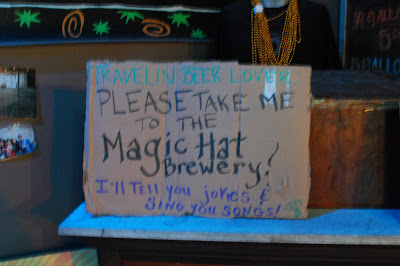 TRAVELIN BEER LOVER
PLEASE TAKE ME
TO THE
Magic Hat
Brewery!
I'll Tell you jokes &
SING YOU SONGS!